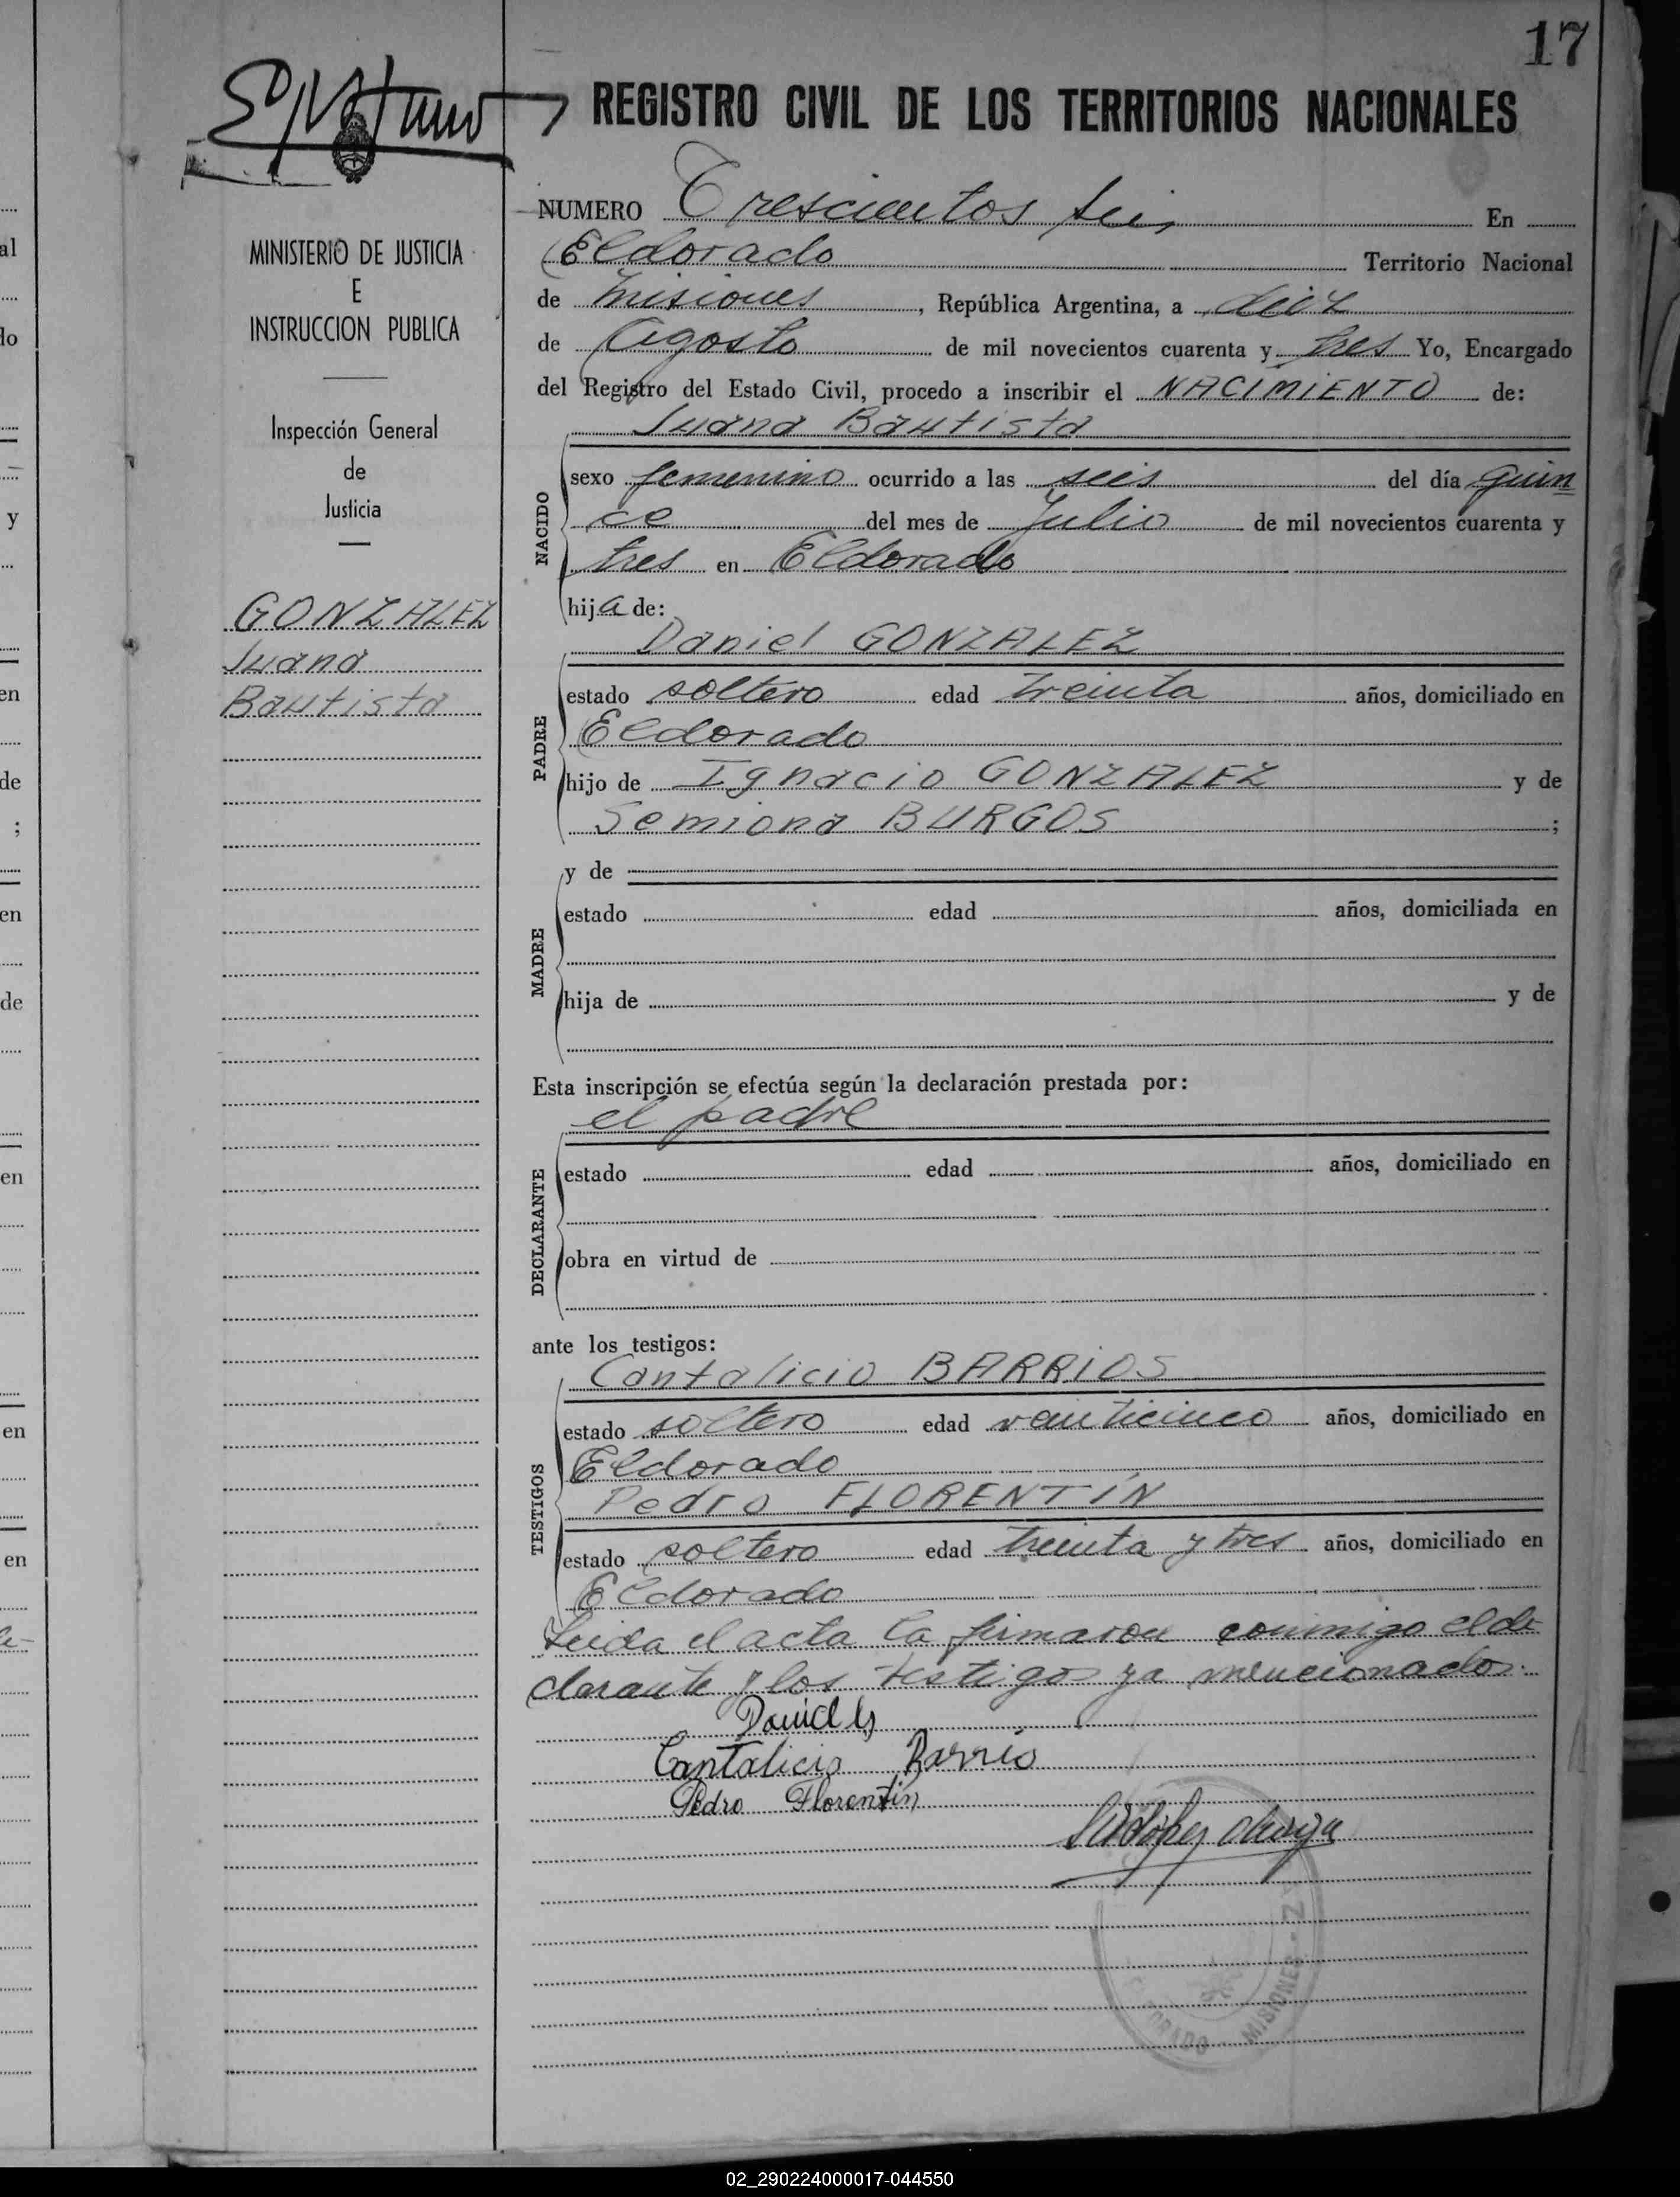 17
REGISTRO CIVIL DE LOS TERRITORIOS NACIONALES
MINISTERIO DE JUSTICIA
E
INSTRUCCION PUBLICA
Inspección General
de
Justicia
GONZALEZ
Juana
Bautista
NUMERO Trescientos seis En
Eldorado Territorio Nacional
de Misiones, República Argentina, a diez
de Agosto de mil novecientos cuarenta y tres Yo, Encargado
del Registro del Estado Civil, procedo a inscribir el NACIMIENTO de:
Juana Bautista
NACIDO
sexo femenino ocurrido a las seis del día quin
ce del mes de Julio de mil novecientos cuarenta y
tres en Eldorado
hija de:
Daniel GONZALEZ
PADRE
estado soltero edad treinta años, domiciliado en
Eldorado
hijo de Ignacio GONZALEZ y de
Semiona BURGOS ;
MADRE
y de
estado edad años, domiciliada en
hija de y de
Esta inscripción se efectúa según la declaración prestada por:
el padre
DECLARANTE
estado edad años, domiciliado en
obra en virtud de
ante los testigos:
Cantalicio BARRIOS
TESTIGOS
estado soltero edad veinticinco años, domiciliado en
Eldorado
Pedro FLORENTÍN
estado soltero edad treinta y tres años, domiciliado en
Eldorado
Leida el acta la firmaron conmigo el de
clarante y los testigos ya mencionados.
Daniel G
Cantalicio Barrio
Pedro Florentín
MISIONES
al
lo
y
en
de
;
en
de
en
en
en
02_290224000017-044550